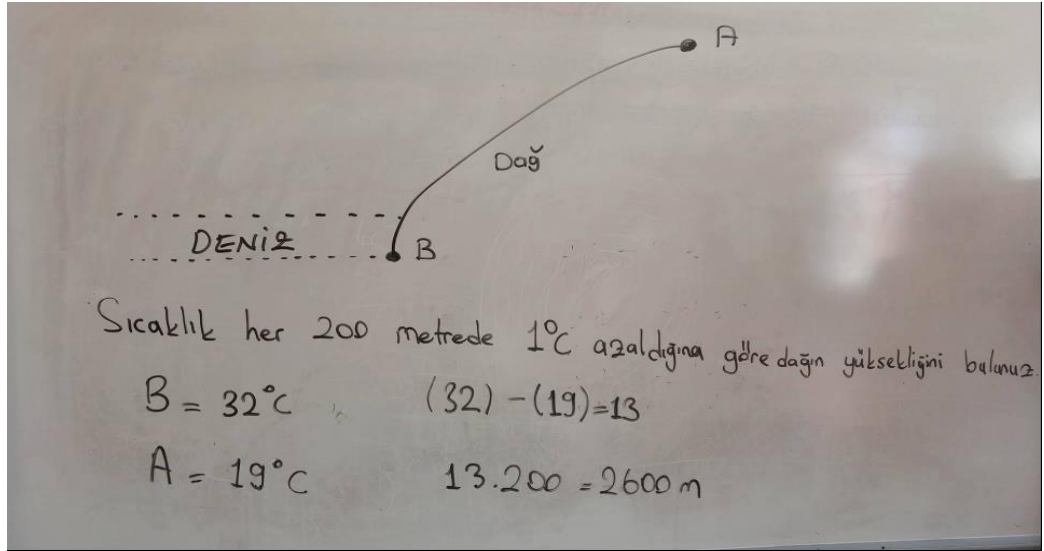 A
Dağ
DENİZ
B
Sıcaklık her 200 metrede 1°C azaldığına göre dağın yüksekliğini bulunuz.
B = 32°C (32) - (19) = 13
A = 19°C 13.200 = 2600 m